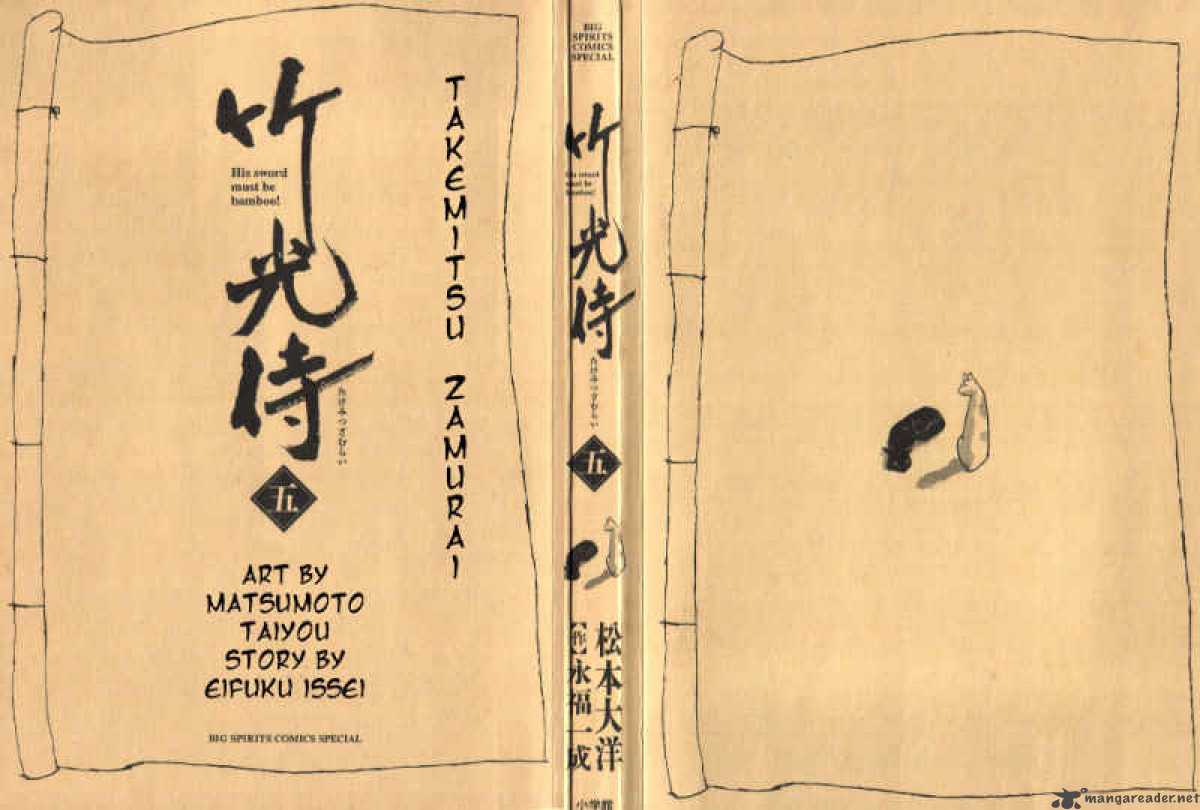 竹光侍
His sword
must be
bamboo!
たけみつざむらい
五
TAKEMITSU ZAMURAI
ART BY
MATSUMOTO
TAIYOU
STORY BY
EIFUKU ISSEI
BIG SPIRITS COMICS SPECIAL
BIG
SPIRITS
COMICS
SPECIAL
竹光侍
His sword
must be
bamboo!
たけみつざむらい
五
松本大洋
【作】永福一成
小学館
mangareader.net